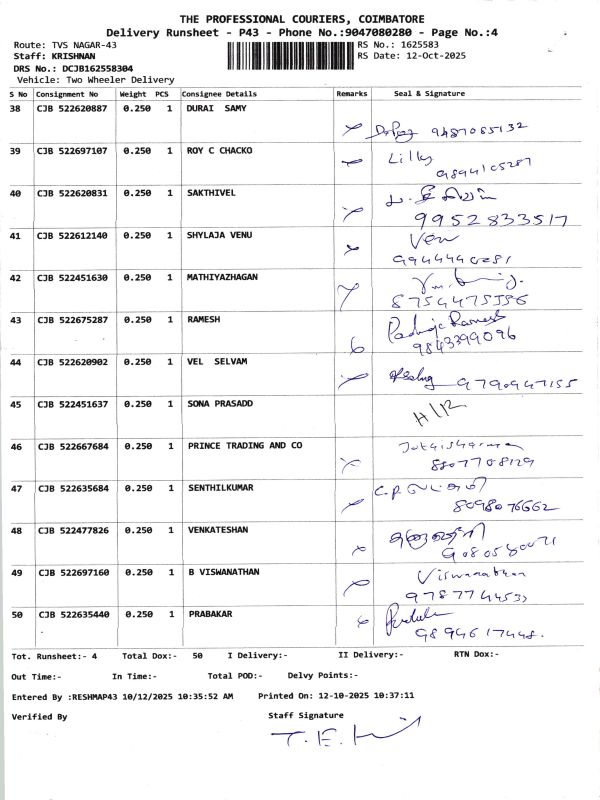 THE PROFESSIONAL COURIERS, COIMBATORE
Delivery Runsheet - P43 - Phone No.:9047080280 - Page No.:4
Route: TVS NAGAR-43 RS No.: 1625583
Staff: KRISHNAN RS Date: 12-Oct-2025
DRS No.: DCJB162558304
Vehicle: Two Wheeler Delivery
S No Consignment No Weight PCS Consignee Details Remarks Seal & Signature
38 CJB 522620887 0.250 1 DURAI SAMY
9487085132
39 CJB 522697107 0.250 1 ROY C CHACKO Lilly
9894105287
40 CJB 522620831 0.250 1 SAKTHIVEL
9952833517
41 CJB 522612140 0.250 1 SHYLAJA VENU Venu
42 CJB 522451630 0.250 1 MATHIYAZHAGAN
43 CJB 522675287 0.250 1 RAMESH Ramesh
9843399096
44 CJB 522620902 0.250 1 VEL SELVAM
9790947155
45 CJB 522451637 0.250 1 SONA PRASADD
46 CJB 522667684 0.250 1 PRINCE TRADING AND CO
8807708129
47 CJB 522635684 0.250 1 SENTHILKUMAR
8098076662
48 CJB 522477826 0.250 1 VENKATESHAN
49 CJB 522697160 0.250 1 B VISWANATHAN Viswanathan
50 CJB 522635440 0.250 1 PRABAKAR
9894617448.
Tot. Runsheet:- 4 Total Dox:- 50 I Delivery:- II Delivery:- RTN Dox:-
Out Time:- In Time:- Total POD:- Delvy Points:-
Entered By :RESHMAP43 10/12/2025 10:35:52 AM Printed On: 12-10-2025 10:37:11
Verified By Staff Signature